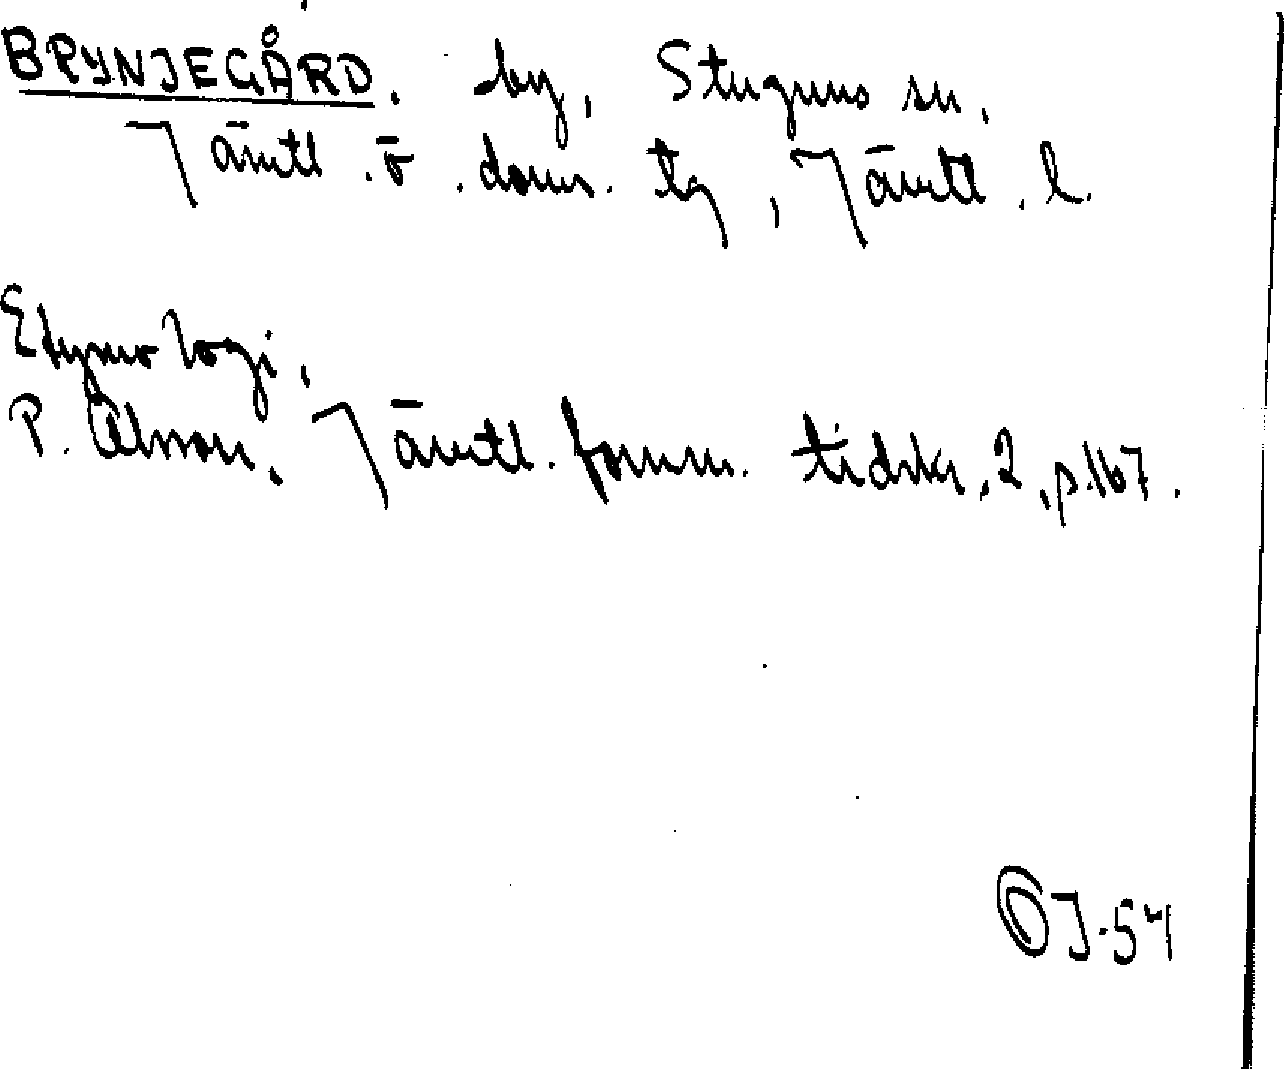 BRYNJEGÅRD. by, Stuguns sn,
Jämtl. ö. doms. tg, Jämtl. l.
Etymologi,
P. Olsson, Jämtl. fornm. tidskr, 2, p. 167.
OJ-54